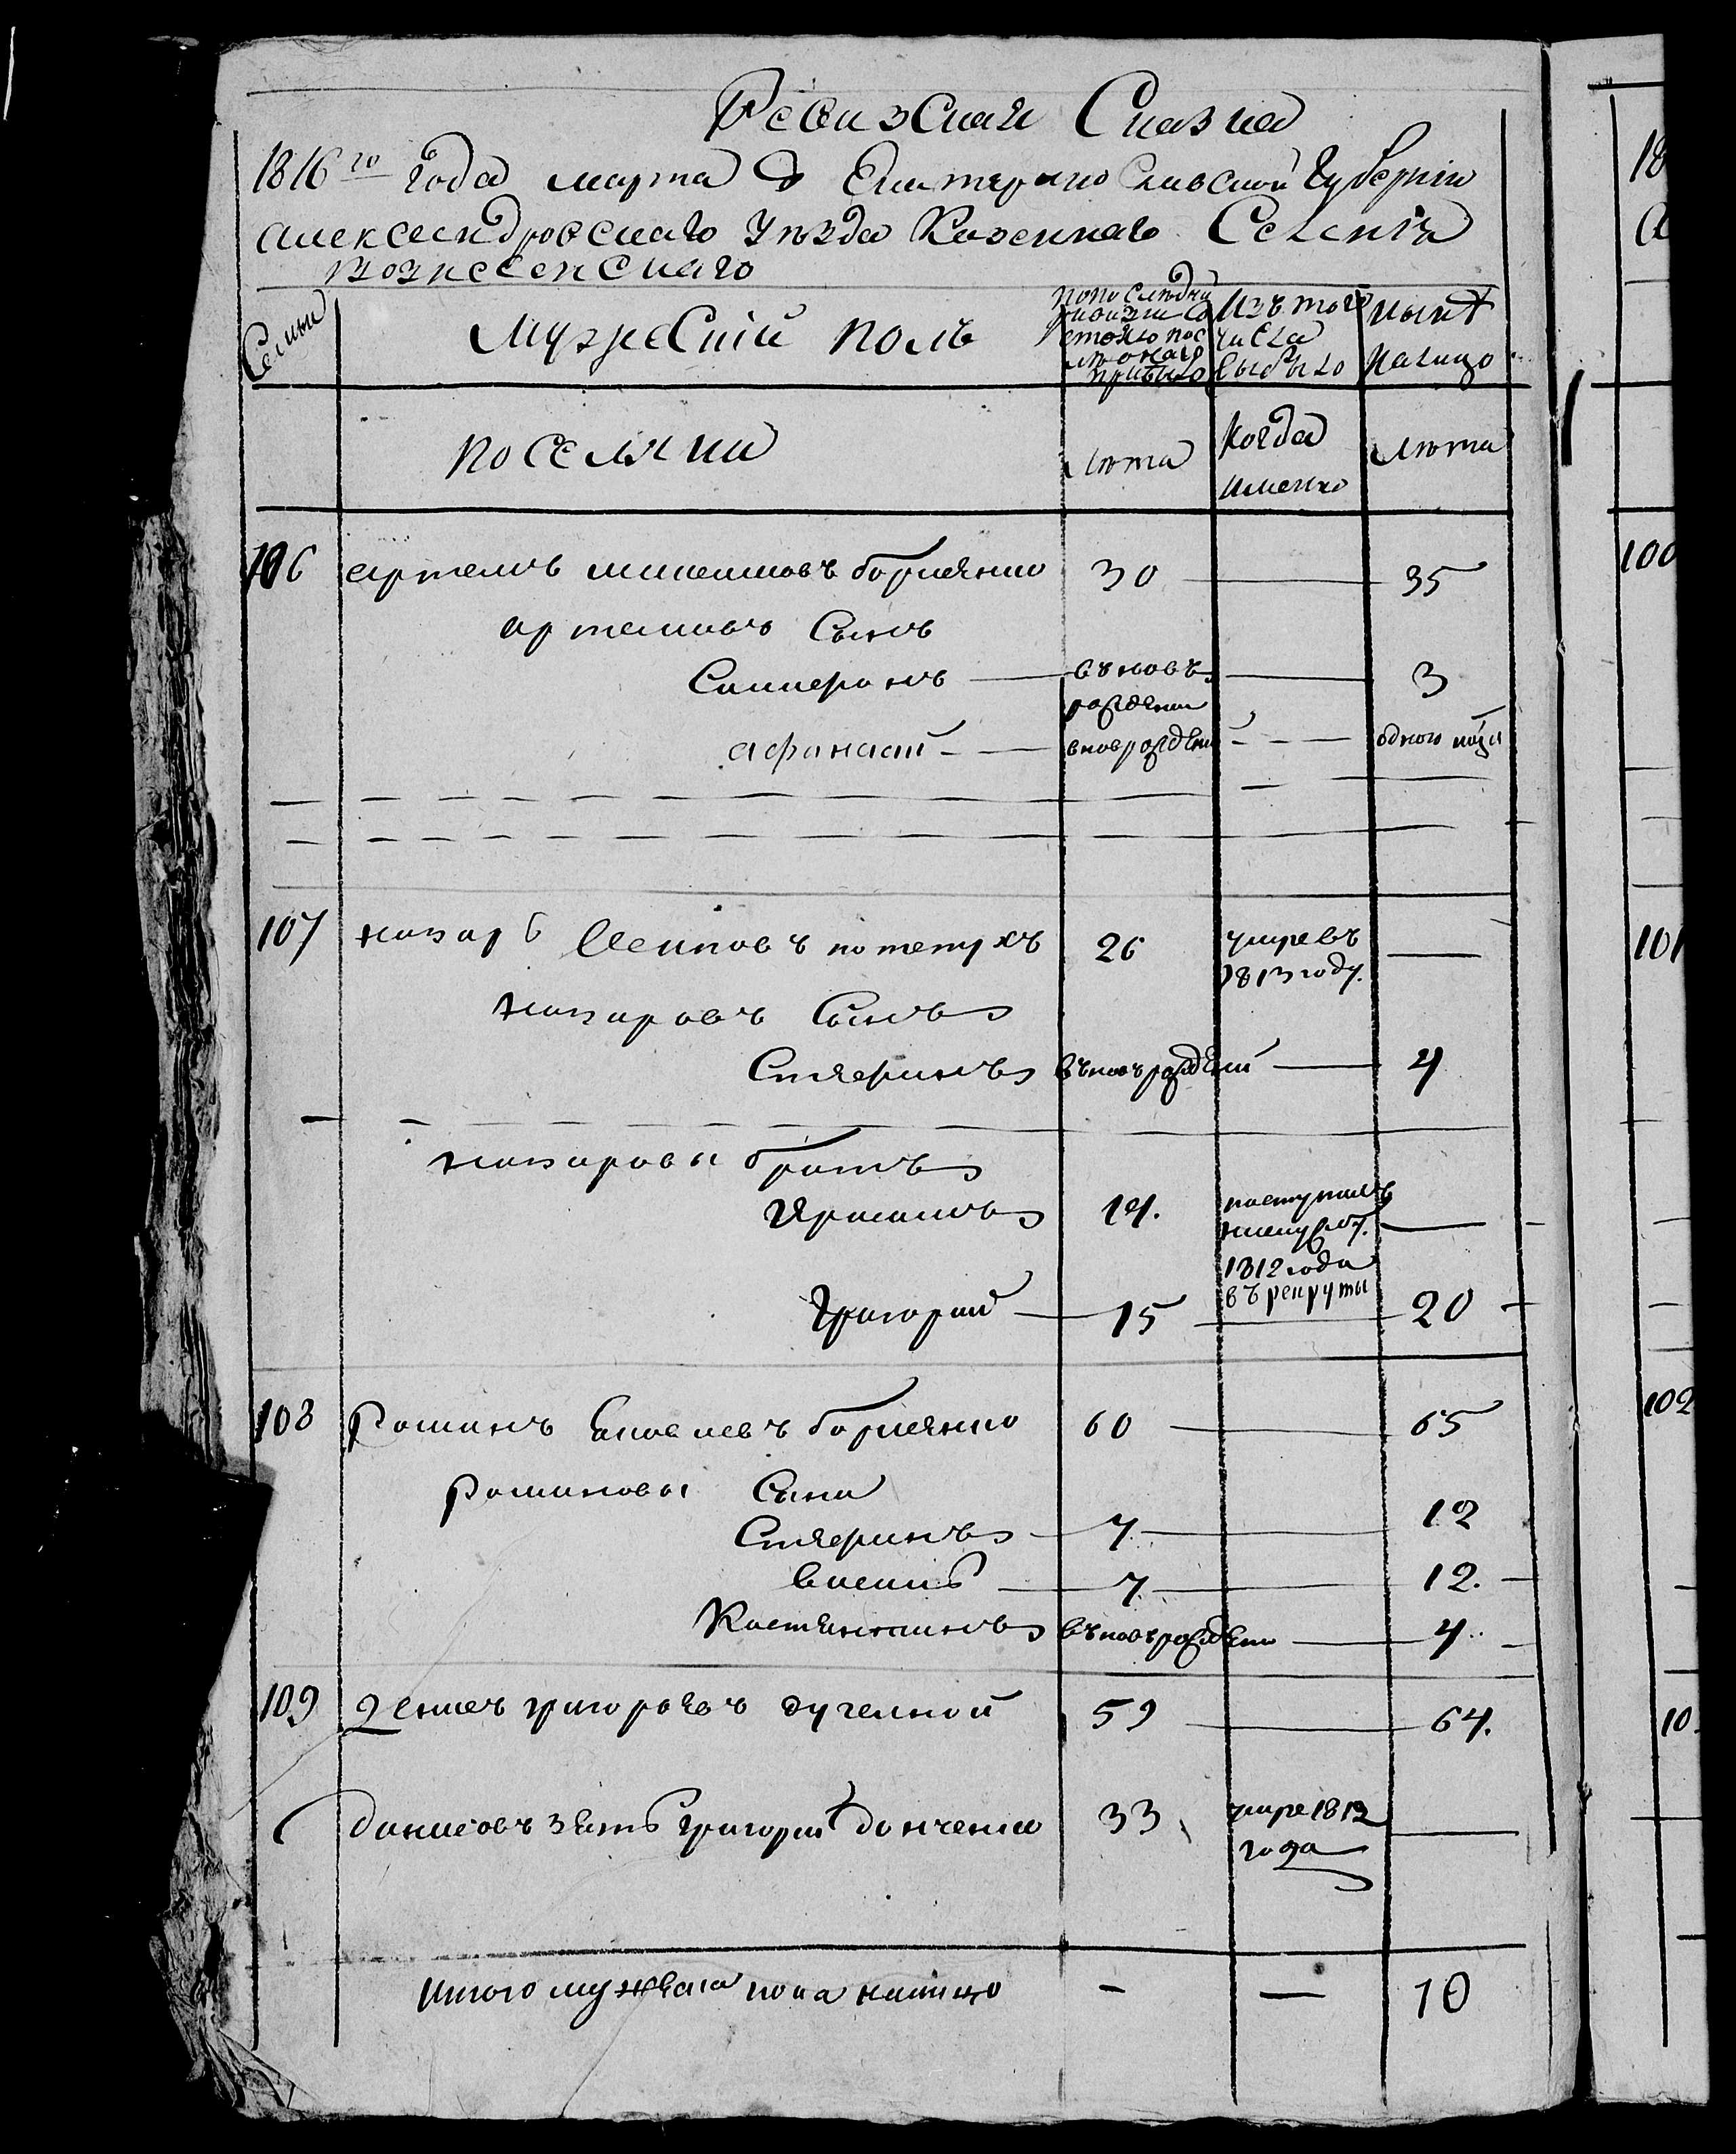 Ревизская Сказка
1816го года марта Екатеринославской Губернии
александровскаго уезда Казеннаго Селения
вознесенскаго
Семьи
Мужеский полъ
по последней ревизии состояло и после онаго прибыло
Изъ того числа выбыло
ныне налицо
поселяни
лета
Когда именно
лета
106 артемъ бормянко 30 35
артемовъ Сынъ
въновъ рожденъ 3
афанасий вноврожденъ одного года
107 назаръ Осиповъ потетухъ 26 умре въ 1813 году.
назаровъ Сынъ
въновърожденъ 4
назаровы братъ
Герасимъ 14. поступилъ 1812 года въ рекруты
Григорий 15 20
108 Романъ Яковлевъ бормянко 60 65
романовы Сыни
7 12
7 12.
Костянтинъ въновърожденъ 4
109 Денисъ григорьевъ 59 64.
данисовъ зять Григорий донченко 33 умре 1812 года
Итого мужеска пола налицо - — 10
18
100
101
102
10